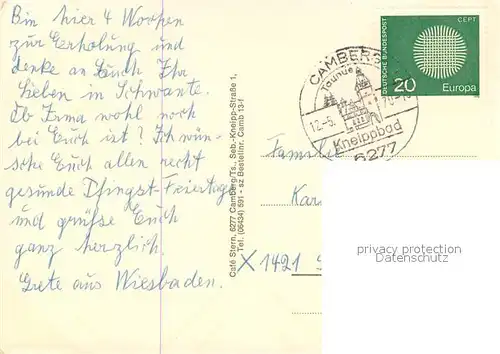 Bin hier 4 Wochen
zur Erholung und
denke an Euch Ihr
Lieben in Schwante.
Ob Irma wohl noch
bei Euch ist? Ich wün-
sche Euch allen recht
gesunde Pfingst-Feiertage
und grüße Euch
ganz herzlich
Grete aus Wiesbaden.
Café Stern, 6277 Camberg/Ts., Seb.-Kneipp-Straße 1,
Tel. (06434) 591 - sz Bestellnr. Camb 13-f
CAMBERG
Taunus
12.-5.
Kneippbad
6277
DEUTSCHE BUNDESPOST
CEPT
20
Europa
Familie
Kar
X 1421
privacy protection
Datenschutz